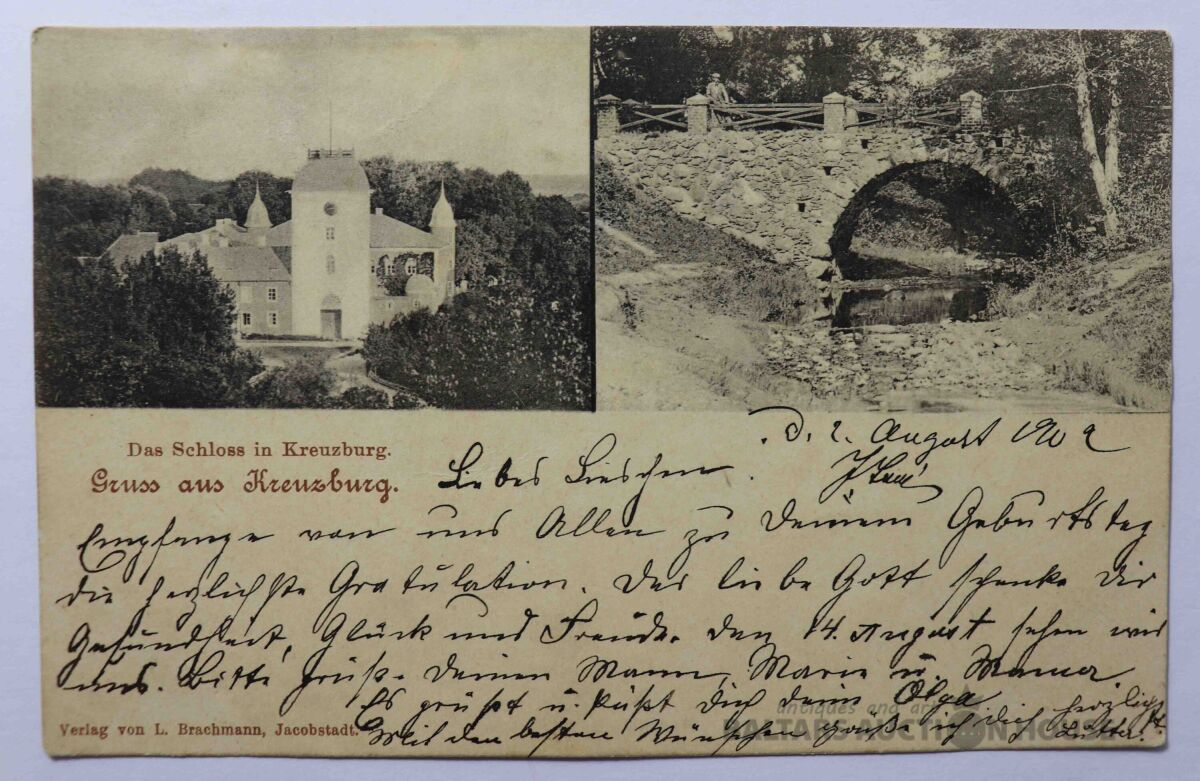 Das Schloss in Kreuzburg.
Gruss aus Kreuzburg.
d. 2. August 1902
Liebes Lieschen.
Empfange von uns Allen zu Deinem Geburtstag
die herzlichste Gratulation. Der liebe Gott schenke Dir
Gesundheit, Glück und Freude. Den 14. August sehen wir
uns. Bitte grüß Deinen Mann, Marie u. Mama
Es grüßt u. küßt Dich deine Olga
Mit den besten Wünschen grüße ich Dich herzlich
Verlag von L. Brachmann, Jacobstadt.
antiques and art
BALTARS AUCTION HOUSE